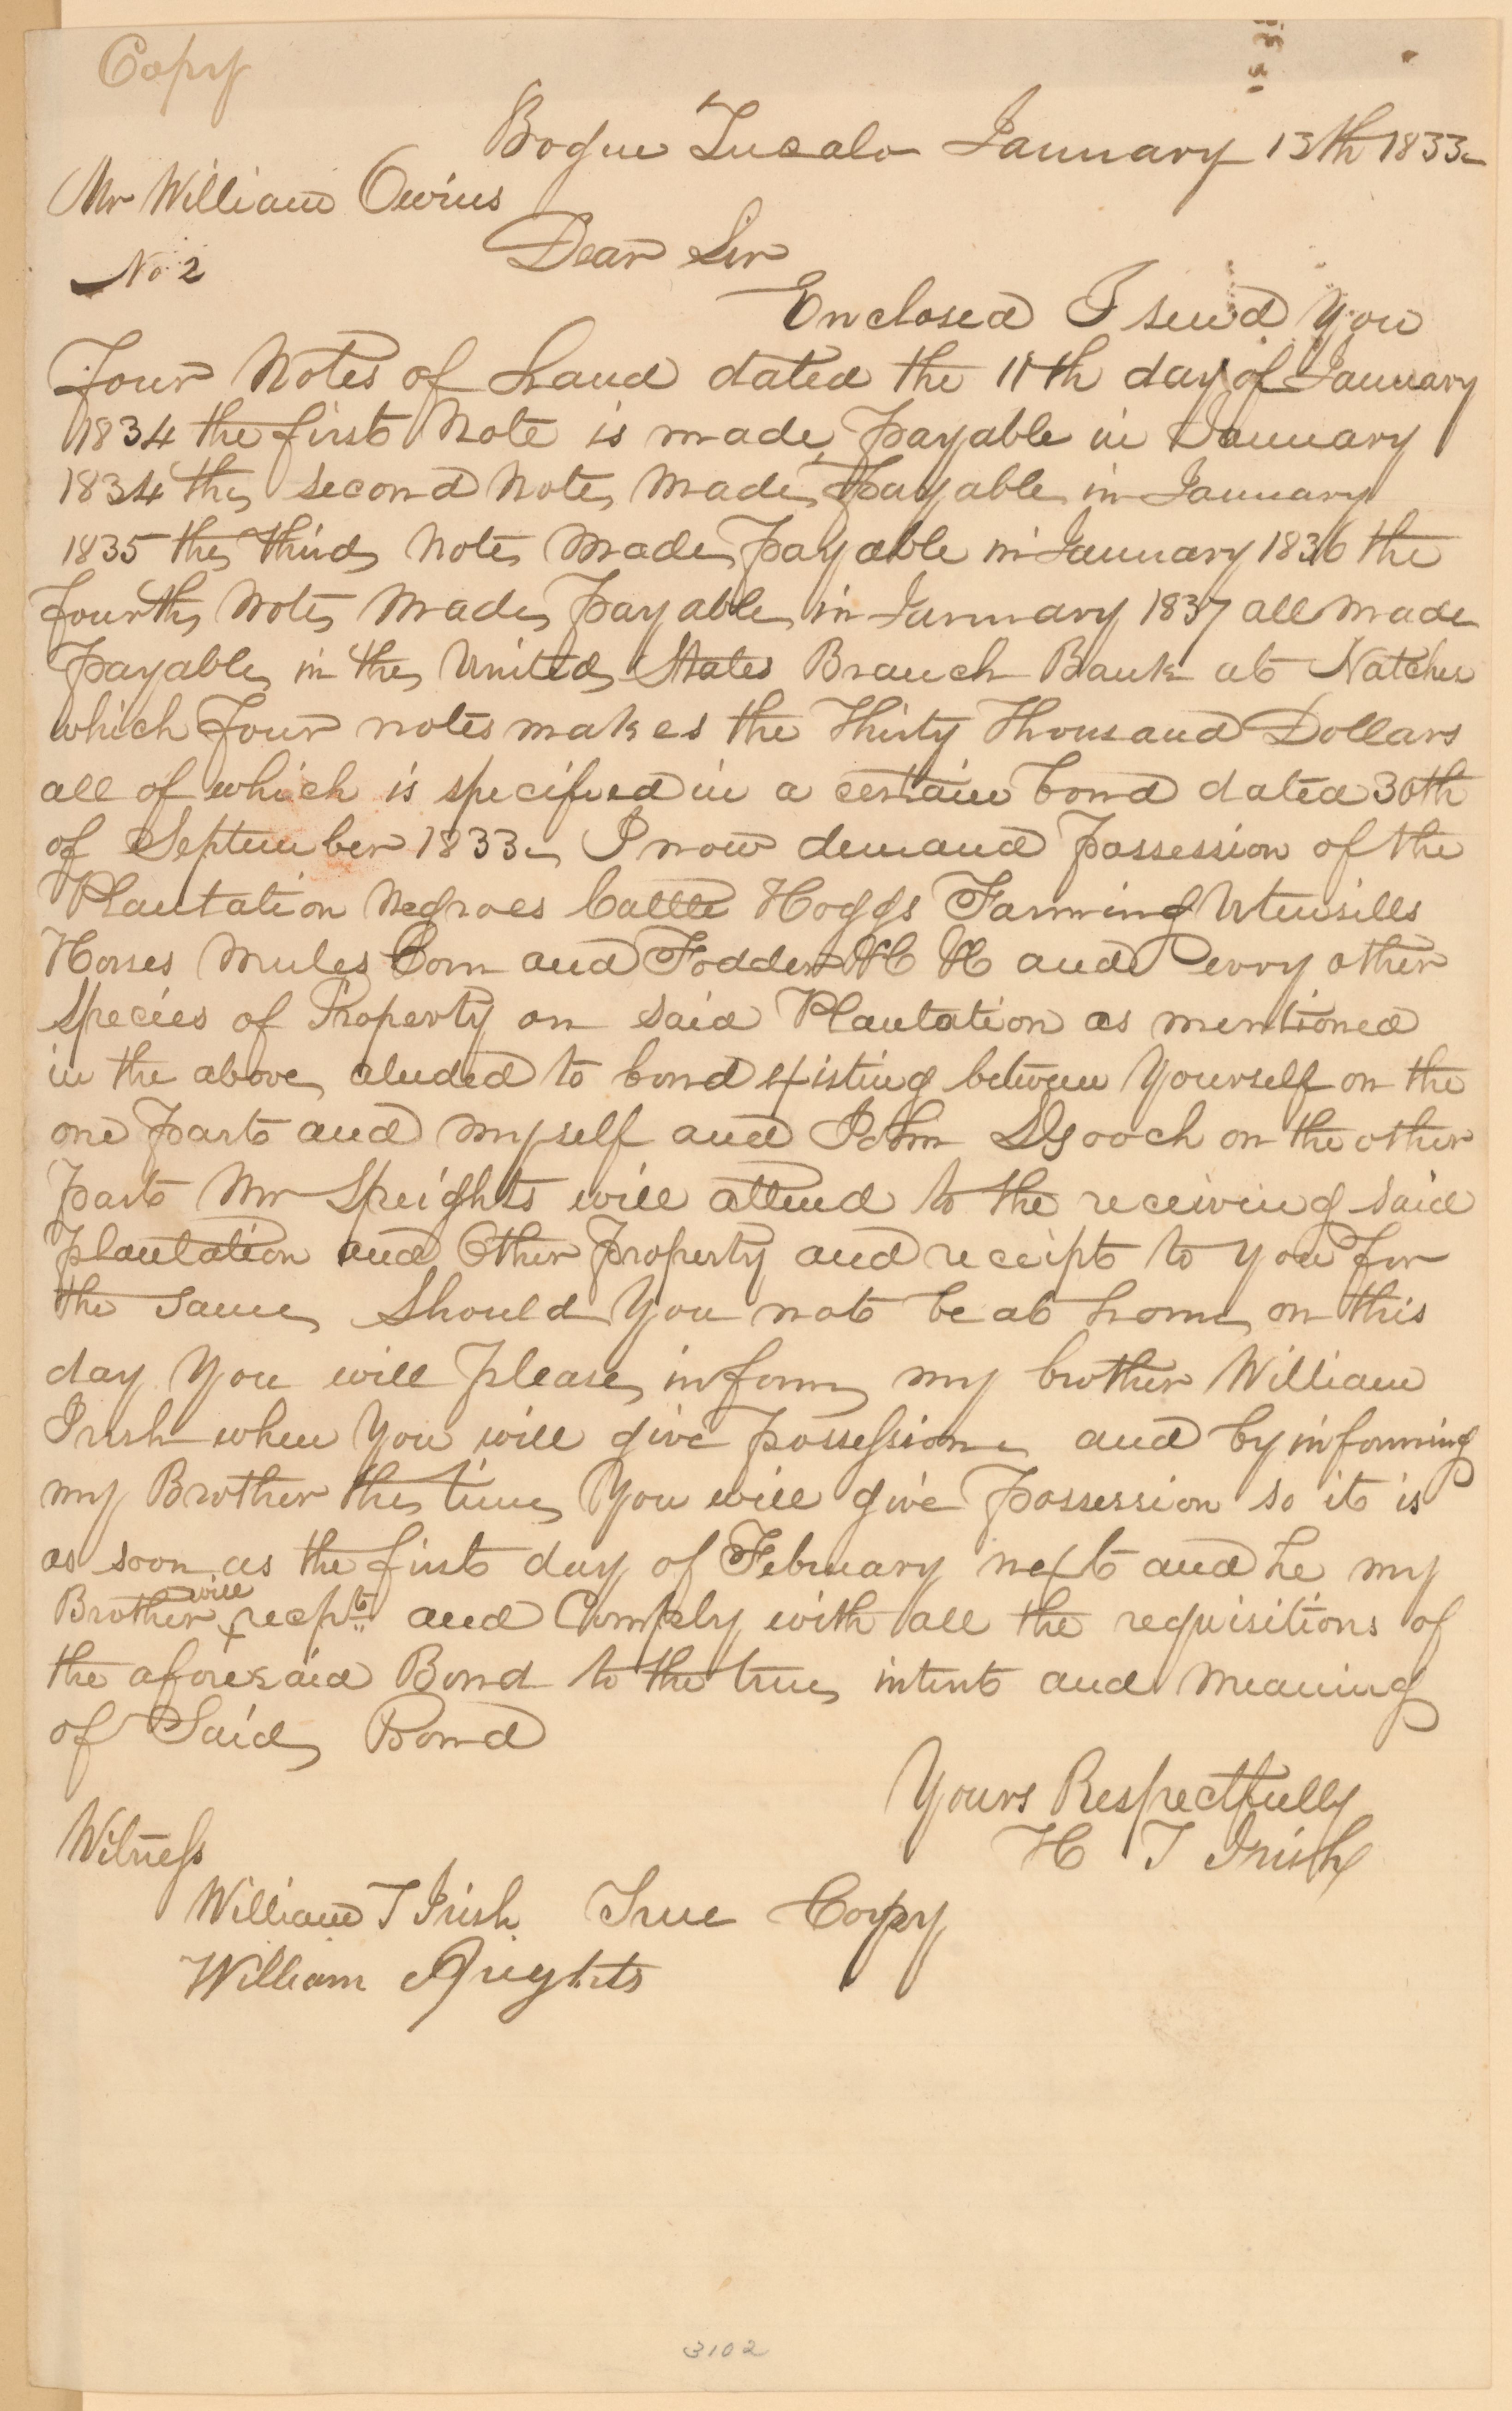 Copy
Bogue Tucalo January 13th 1833
Mr William Owins
Dear Sir
No 2
Enclosed I send you
Four Notes of hand dated the 11th day of January
1834 the first Note is made payable in January
1834 the second Note Made Payable in January
1835 the third Note Made payable in January 1836 the
fourth Note Made payable in January 1837 all made
payable in the United States Branch Bank at Natchez
which Four notes makes the Thirty Thousand Dollars
all of which is specified in a certain bond dated 30th
of September 1833 I now demand possession of the
Plantation Negroes Cattle Hoggs Farming Utensills
Horses Mules Corn and Fodder &C &C and evvry other
Species of Property on said Plantation as mentioned
in the above aluded to bond existing between Yourself on the
one part and myself and John D Gooch on the other
part Mr Speights will attend to the receiving said
plantation and Other property and receipt to you for
the same Should You not be at home on this
day You will please inform my brother William
Irish when You will give possession and by informing
my Brother the time You will give possession so it is
as soon as the first day of February next and he my
Brother will recpt and Comply with all the requisitions of
the aforesaid Bond to the true intent and Meaning
of Said Bond
Yours Respectfully
H T Irish
Witness
William T Irish True Copy
William Speights
3102